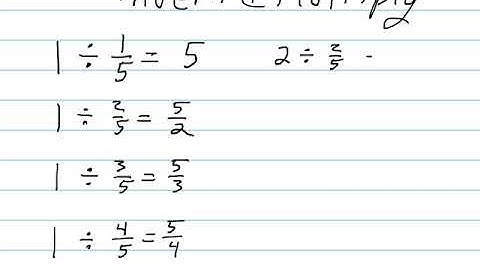 1 ÷ 1/5 = 5    2 ÷ 2/5 -
1 ÷ 2/5 = 5/2
1 ÷ 3/5 = 5/3
1 ÷ 4/5 = 5/4